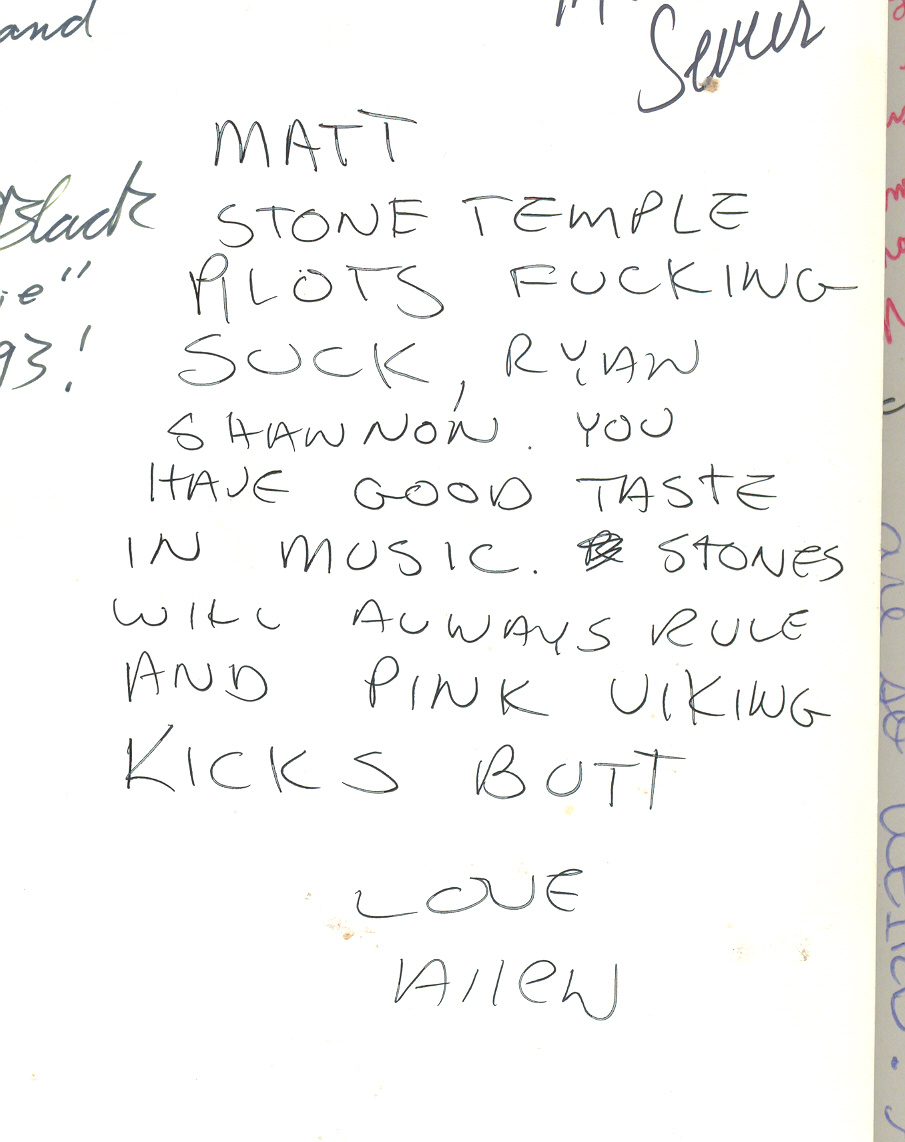 and
Sevur
MATT
STONE TEMPLE
Black
PILOTS FUCKING
ie"
SUCK, RYAN
93!
SHANNON. YOU
HAVE GOOD TASTE
IN MUSIC. STONES
WILL ALWAYS RULE
AND PINK VIKING
KICKS BUTT
LOVE
Allen
are so weird.